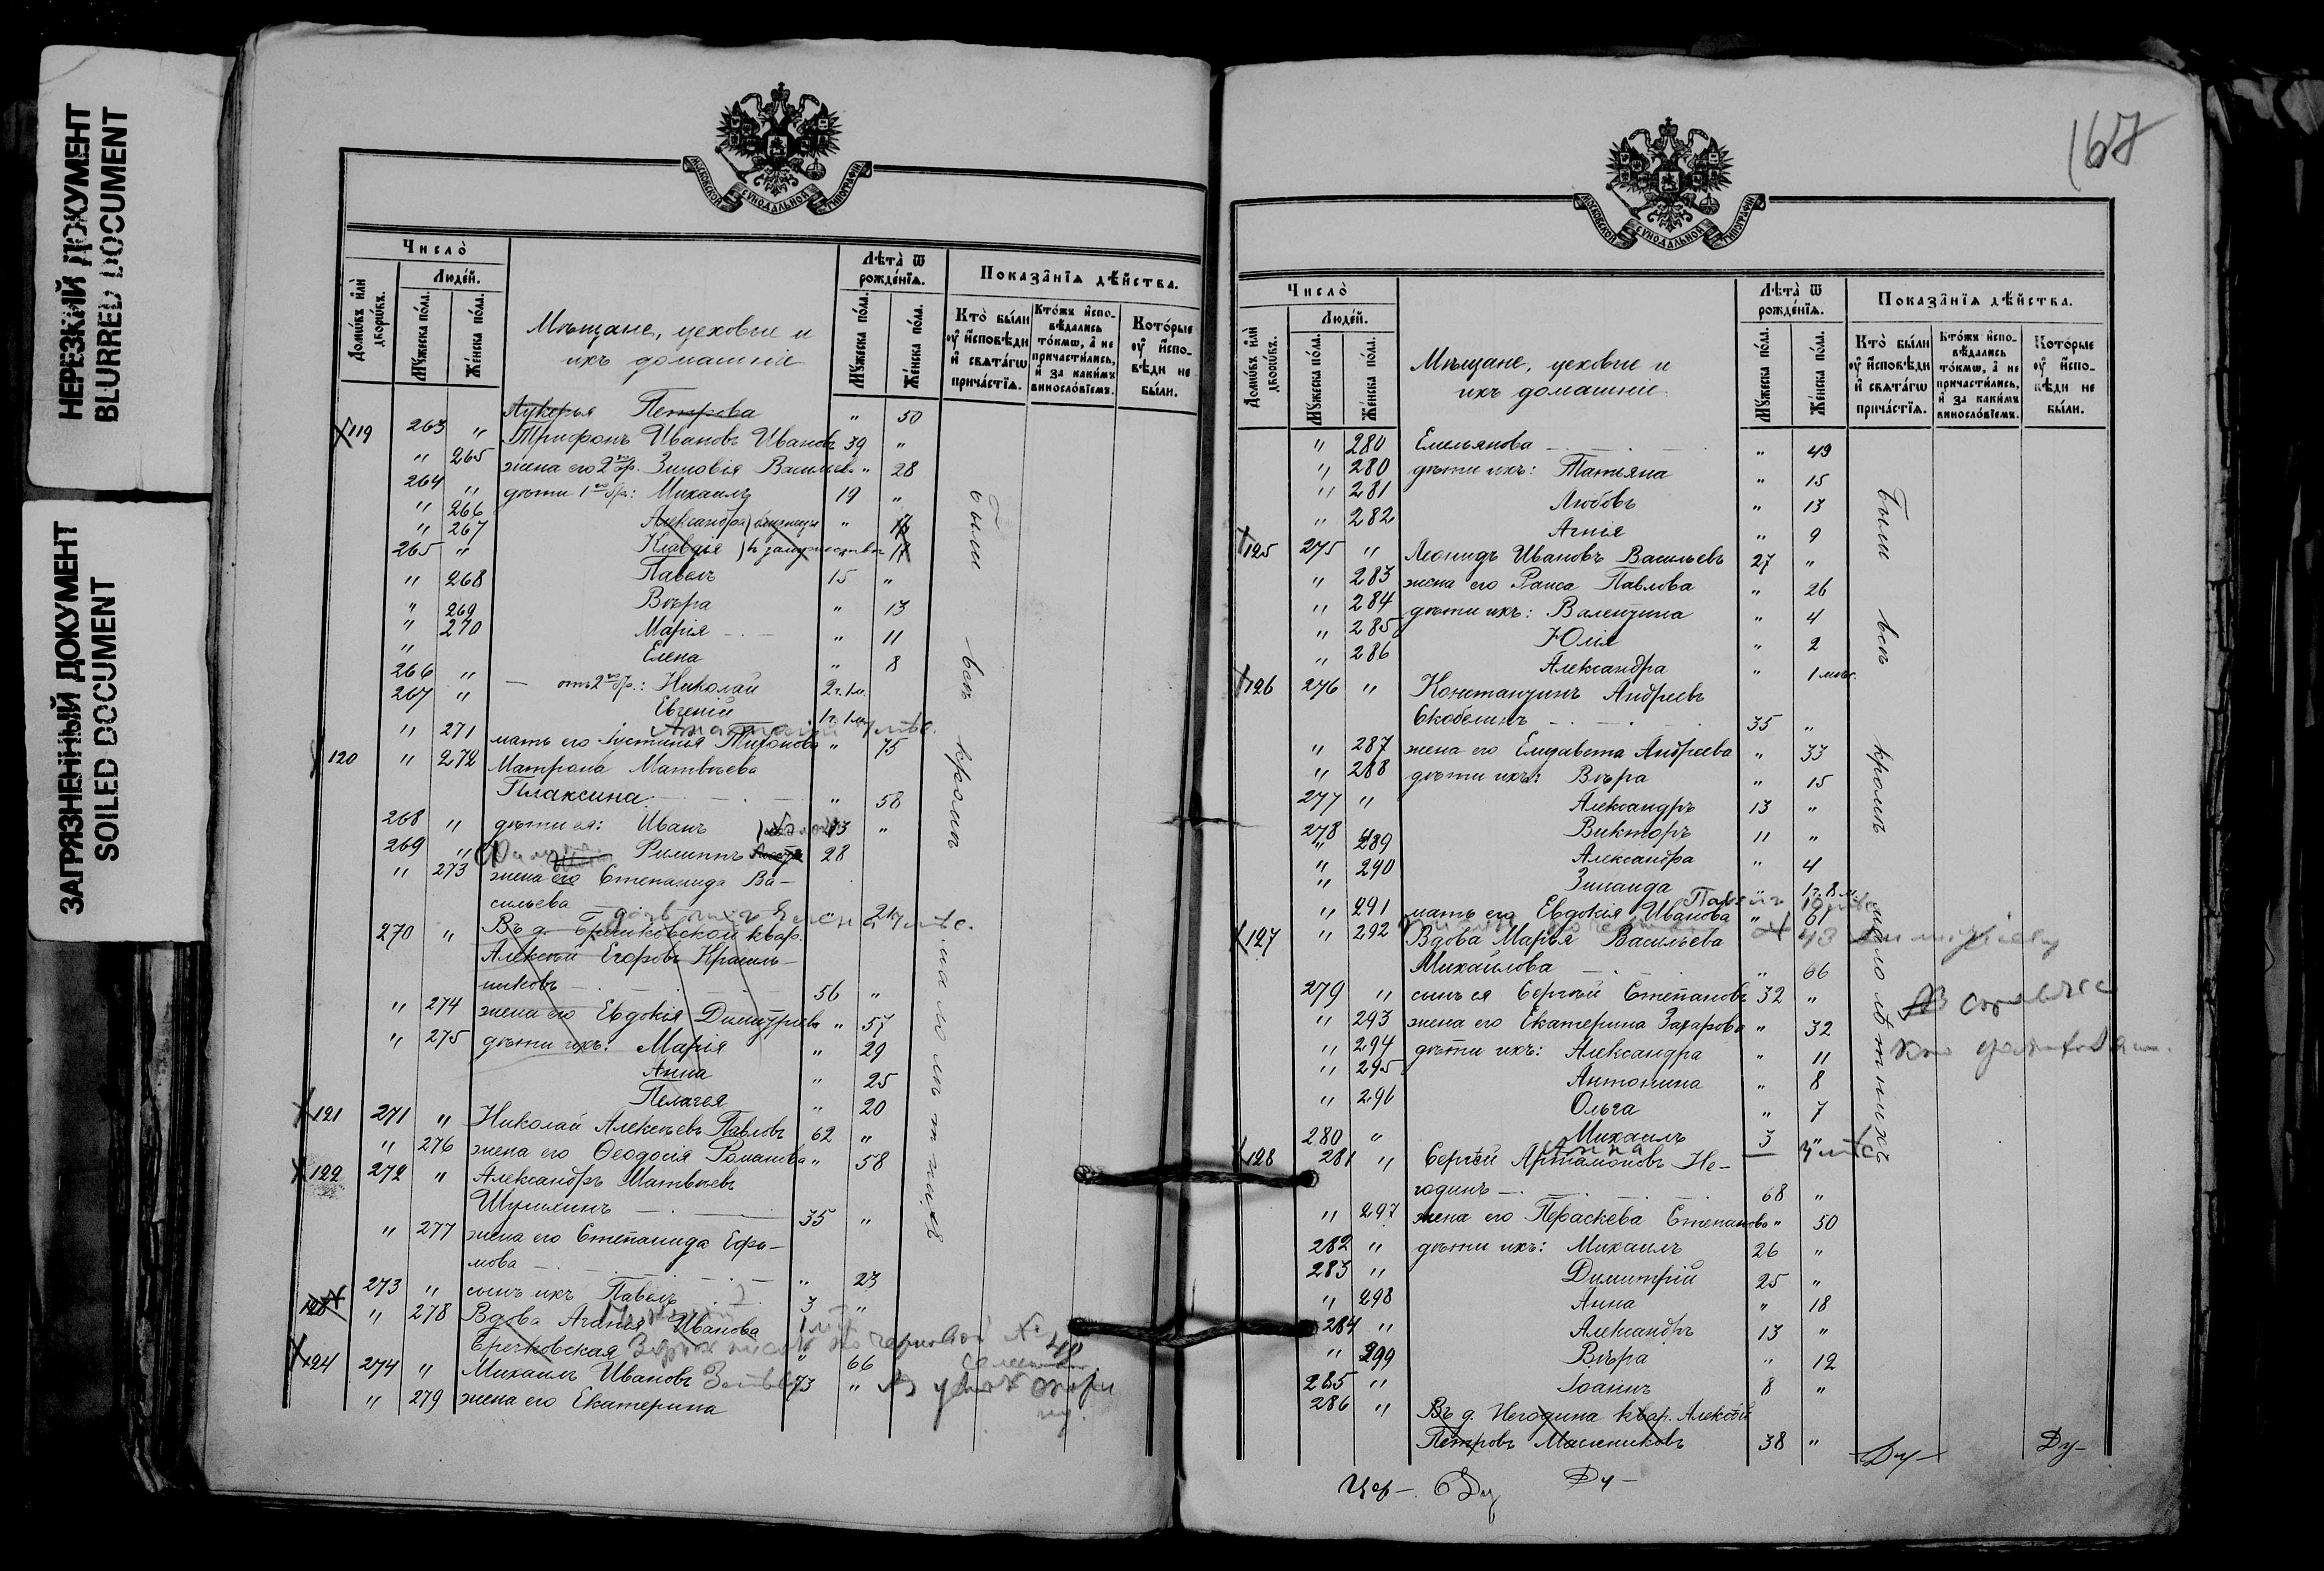 НЕРЕЗКИЙ ДОКУМЕНТ
BLURRED DOCUMENT
ЗАГРЯЗНЕННЫЙ ДОКУМЕНТ
SOILED DOCUMENT
МОСКОВСКОЙ СѴНОДАЛЬНОЙ ТИПОГРАФІИ
Число̀
Люде́й.
Домѡ́въ и҆лѝ дворѡ́въ.
Мꙋ́жеска по́ла.
Же́нска по́ла.
Мѣщане, цеховые и
ихъ домашніе
Лѣта̀ ѿ рожде́нїѧ.
Мꙋ́жеска по́ла.
Же́нска по́ла.
Показа̑нїѧ дѣ́йства.
Кто̀ бы́ли ᲂу҆ и҆сповѣ́ди и҆ свѧта́гѡ прича́стїѧ.
Кто́жъ и҆сповѣ́дались то́кмѡ, а҆ не причасти́лись, и҆ за каки́мъ винослѡ́вїемъ.
Кото́рые ᲂу҆ и҆сповѣ́ди не бы́ли.
Лукерья Петрова " 50
119 263 " Трифонъ Ивановъ Ивановъ 39 "
" 265 жена его 2го бр. Зиновія Васильев. " 28
264 " дѣти 1го бр.: Михаилъ 19 "
" 266 Александра близнецы "
" 267 Клавдія въ замужествѣ
265 " Павелъ 15 "
" 268 Вѣра " 13
" 269 Марія " 11
" 270 Елена " 8
266 " отъ 2го бр.: Николай 2 г. 1 м.
267 " Евгеній 1 г. 1 м.
" 271 мать его Іустинія Тихонова " 75
120 " 272 Матрона Матвѣева
Плаксина " 58
268 " дѣти ея: Иванъ "
269 " Филиппъ 28
" 273 жена его Степанида Ва-
сильева
270 " Въ д. Гречковской квар.
Алексѣй Егоровъ Красиль-
никовъ 56 "
" 274 жена его Евдокія Димитріева " 57
" 275 дѣти ихъ: Марія " 29
Анна " 25
Пелагея " 20
121 271 " Николай Алексѣевъ Павловъ 62 "
" 276 жена его Ѳеодосія Романова " 58
122 272 " Александръ Матвѣевъ
Шумихинъ 35 "
" 277 жена его Степанида Ефи-
мова " 23
273 " сынъ ихъ Павелъ 3 "
123 " 278 Вдова Агапія Иванова
Гречковская " 66
124 274 " Михаилъ Ивановъ 73 "
" 279 жена его Екатерина
Были всѣ кромѣ малолѣтнихъ
167
МОСКОВСКОЙ СѴНОДАЛЬНОЙ ТИПОГРАФІИ
Число̀
Люде́й.
Домѡ́въ и҆лѝ дворѡ́въ.
Мꙋ́жеска по́ла.
Же́нска по́ла.
Мѣщане, цеховые и
ихъ домашніе
Лѣта̀ ѿ рожде́нїѧ.
Мꙋ́жеска по́ла.
Же́нска по́ла.
Показа̑нїѧ дѣ́йства.
Кто̀ бы́ли ᲂу҆ и҆сповѣ́ди и҆ свѧта́гѡ прича́стїѧ.
Кто́жъ и҆сповѣ́дались то́кмѡ, а҆ не причасти́лись, и҆ за каки́мъ винослѡ́вїемъ.
Кото́рые ᲂу҆ и҆сповѣ́ди не бы́ли.
" 280 Емельянова " 49
" 280 дѣти ихъ: Татьяна " 15
" 281 Любовь " 13
" 282 Агнія " 9
125 275 " Леонидъ Ивановъ Васильевъ 27 "
" 283 жена его Раиса Павлова " 26
" 284 дѣти ихъ: Валентина " 4
" 285 Юлія " 2
" 286 Александра " 1 мѣс.
126 276 " Константинъ Андреевъ
Скобелинъ 35 "
" 287 жена его Елизавета Андреева " 33
" 288 дѣти ихъ: Вѣра " 15
277 " Александръ 13 "
278 " Викторъ 11 "
" 289 Александра " 4
" 290 Зинаида " 1 г. 8 м.
" 291 мать его Евдокія Иванова " 61
127 " 292 Вдова Марья Васильева
Михайлова " 66
279 " сынъ ея Сергѣй Степановъ 32 "
" 293 жена его Екатерина Захарова " 32
" 294 дѣти ихъ: Александра " 11
" 295 Антонина " 8
" 296 Ольга " 7
280 " Михаилъ 3 "
Анна
128 281 " Сергѣй Артамоновъ Не-
годинъ 68 "
" 297 жена его Параскева Степанова " 50
282 " дѣти ихъ: Михаилъ 26 "
283 " Димитрій 25 "
" 298 Анна " 18
284 " Александръ 13 "
" 299 Вѣра " 12
285 " Іоаннъ 8 "
286 " Въ д. Негодина квар. Алексѣй
Петровъ Масленниковъ 38 "
Были всѣ кромѣ малолѣтнихъ